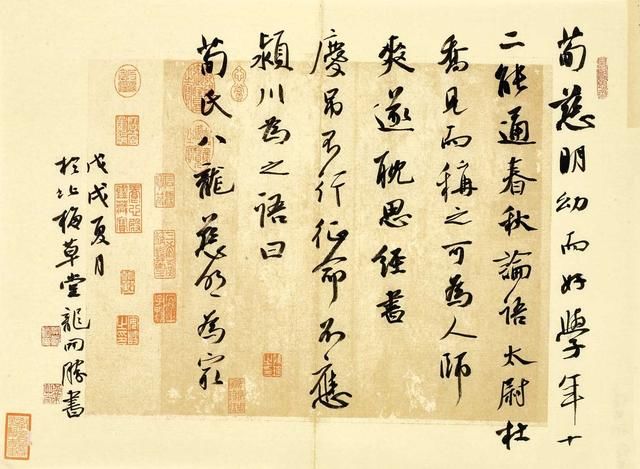 荀慈明幼而好學年十
二能通春秋論語太尉杜
喬見而稱之可為人師
爽遂耽思經書
慶弔不行征命不應
潁川為之語曰
荀氏八龍慈明為冣
戊戌夏月
於梅草堂龍開勝書